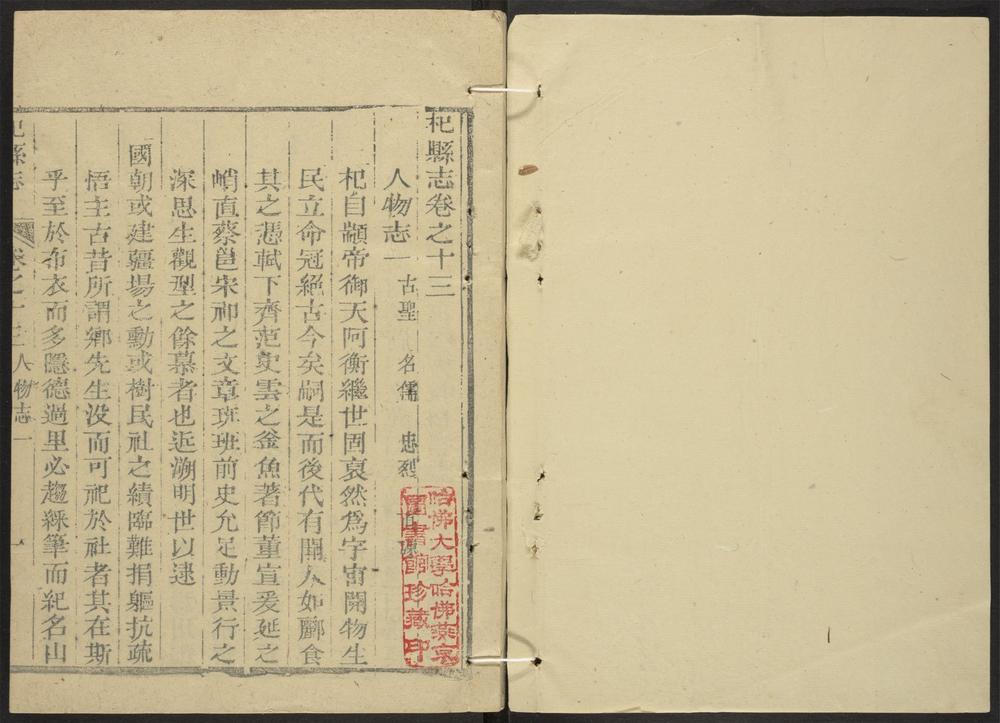 杞縣志卷之十三
人物志一 古聖 名儒 忠烈
杞自顓帝御天阿衡繼世固裒然為宇宙開物生
民立命冠絕古今矣嗣是而後代有聞人如酈食
其之憑軾下齊范史雲之釜魚著節董宣爰延之
峭直蔡邕宋祁之文章班班前史允足動景行之
深思生觀型之餘慕者也近溯明世以逮
國朝或建疆場之勳或樹民社之績臨難捐軀抗疏
悟主古昔所謂鄉先生没而可祀於社者其在斯
乎至於布衣而多隱德過里必趨綵筆而紀名山
杞縣志 卷之十三 人物志一 一
哈佛大學哈佛燕京
圖書館珍藏印